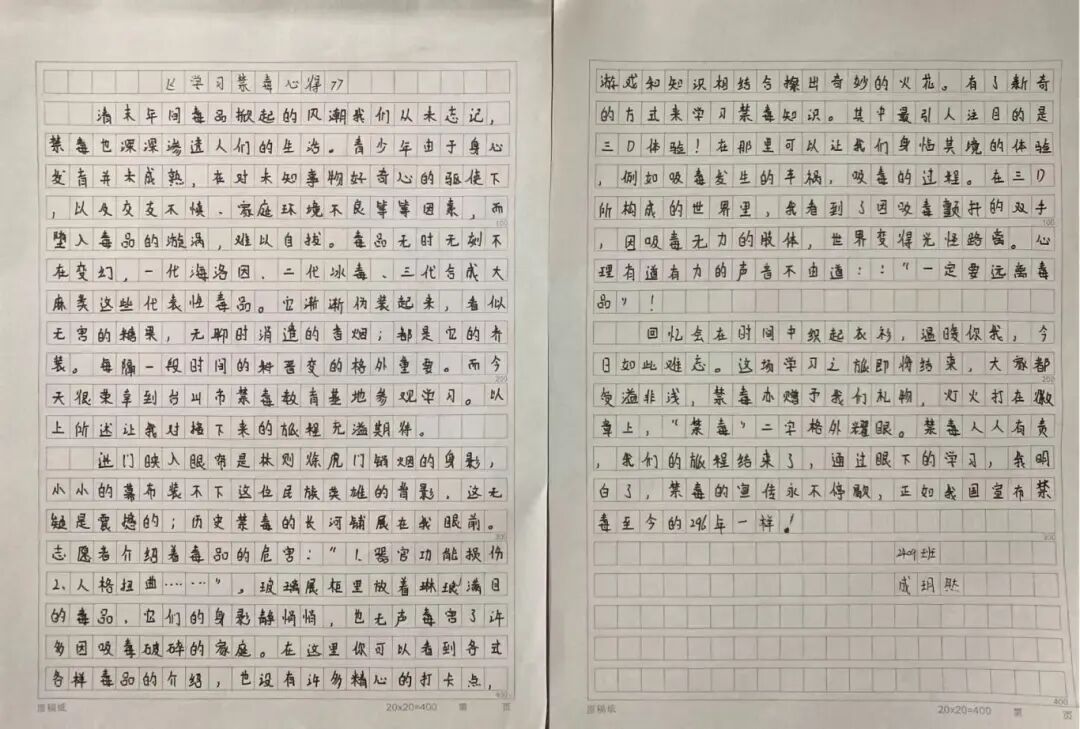 《学习禁毒心得》
清末年间毒品掀起的风潮我们从未忘记，
禁毒也深深渗透人们的生活。青少年由于身心
发育并未成熟，在对未知事物好奇心的驱使下
，以及交友不慎、家庭环境不良等等因素，而
堕入毒品的漩涡，难以自拔。毒品无时无刻不
在变幻，一代海洛因、二代冰毒、三代合成大
麻类这些代表性毒品。它渐渐伪装起来，看似
无害的糖果，无聊时消遣的香烟；都是它的乔
装。每隔一段时间的科普变的格外重要。而今
天很荣幸到台山市禁毒教育基地参观学习。以
上所述让我对接下来的旅程充溢期待。
进门映入眼帘是林则徐虎门销烟的身影，
小小的幕布装不下这位民族英雄的背影，这无
疑是震撼的；历史禁毒的长河铺展在我眼前。
志愿者介绍着毒品的危害："1、器官功能损伤
2、人格扭曲……"。玻璃展柜里放着琳琅满目
的毒品，它们的身影静悄悄，也无声毒害了许
多因吸毒破碎的家庭。在这里你可以看到各式
各样毒品的介绍，也设有许多精心的打卡点，
原稿纸 20×20=400 第 页
游戏和知识相结合擦出奇妙的火花。有了新奇
的方式来学习禁毒知识。其中最引人注目的是
三D体验！在那里可以让我们身临其境的体验
，例如吸毒发生的车祸，吸毒的过程。在三D
所构成的世界里，我看到了因吸毒颤抖的双手
，因吸毒无力的肢体，世界变得光怪陆离。心
理有道有力的声音不由道：："一定要远离毒
品"！
回忆会在时间中织起衣衫，温暖你我，今
日如此难忘。这场学习之旅即将结束，大家都
受益非浅，禁毒亦赠予我们礼物，灯火打在徽
章上，"禁毒"二字格外耀眼。禁毒人人有责
，我们的旅程结束了，通过眼下的学习，我明
白了，禁毒的宣传永不停歇，正如我国宣布禁
毒至今的296年一样！
2409班
成玥
原稿纸 20×20=400 第 页